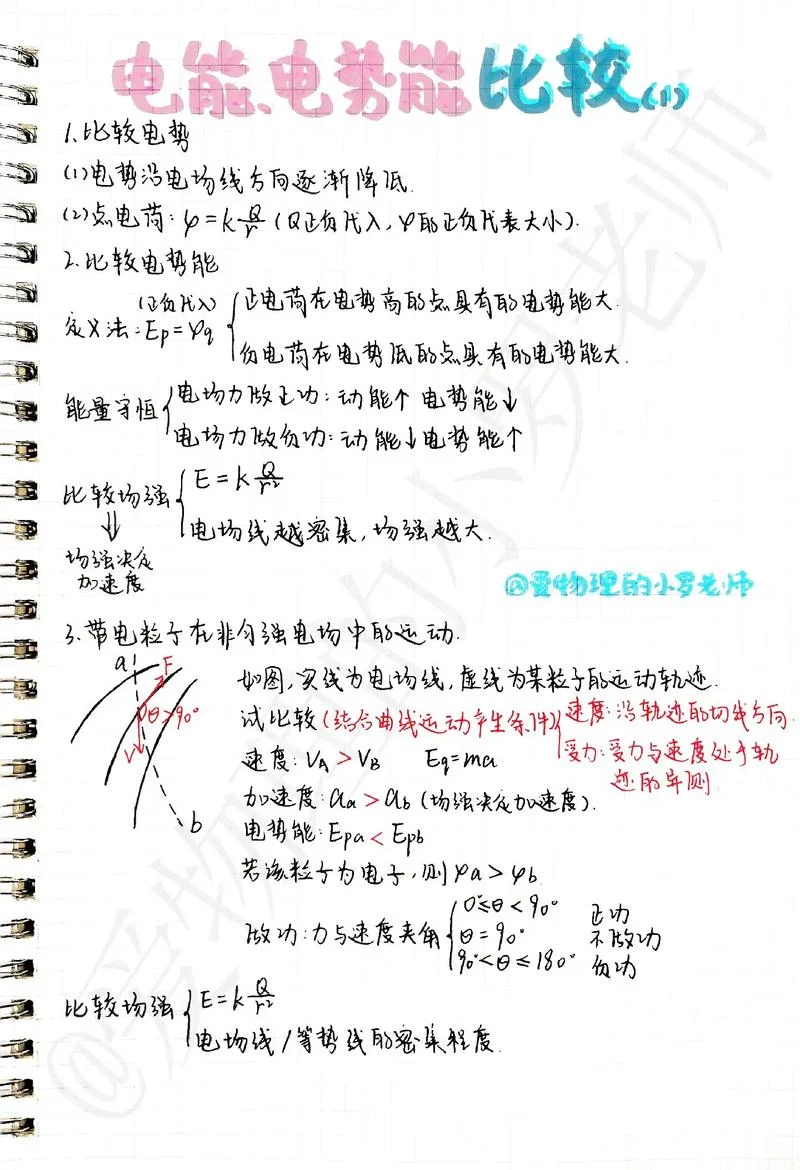 电能、电势能比较(1)
1.比较电势
(1)电势沿电场线方向逐渐降低.
(2)点电荷：φ=kQ/r (Q正负代入，φ的正负代表大小).
2.比较电势能
(正负代入)
定义法：Ep=φq
正电荷在电势高的点具有的电势能大.
负电荷在电势低的点具有的电势能大.
能量守恒
电场力做正功：动能↑ 电势能↓
电场力做负功：动能↓电势能↑
比较场强
E=kQ/r²
电场线越密集，场强越大.
⇓
场强决定
加速度
@爱物理的小罗老师
3.带电粒子在非匀强电场中的运动.
a
F
θ>90°
V
b
如图，实线为电场线，虚线为某粒子的运动轨迹.
试比较(结合曲线运动产生条件)
速度：沿轨迹的切线方向.
受力：受力与速度处于轨
迹的异侧.
速度：VA>VB Eq=ma
加速度：aa>ab (场强决定加速度).
电势能：Epa<Epb
若该粒子为电子，则φa>φb
做功：力与速度夹角
0°≤θ<90° 正功
θ=90° 不做功
90°<θ≤180° 负功
比较场强
E=kQ/r²
电场线/等势线的密集程度.
@爱物理的小罗老师